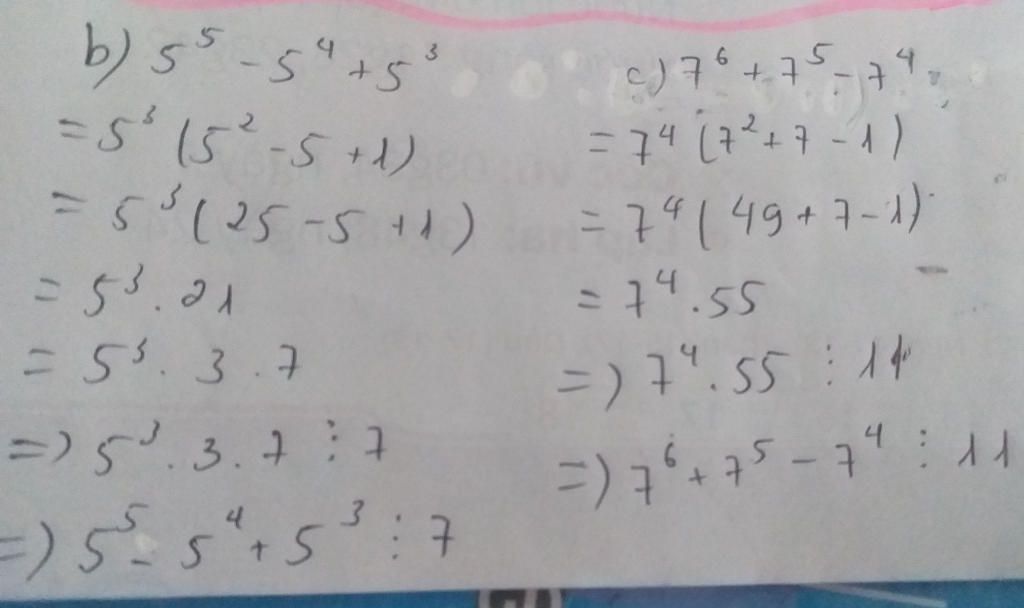 b) 5⁵ - 5⁴ + 5³
= 5³ (5² - 5 + 1)
= 5³ (25 - 5 + 1)
= 5³ . 21
= 5³ . 3 . 7
=) 5³ . 3 . 7 ⋮ 7
=) 5⁵ - 5⁴ + 5³ ⋮ 7
c) 7⁶ + 7⁵ - 7⁴
= 7⁴ (7² + 7 - 1)
= 7⁴ (49 + 7 - 1)
= 7⁴ . 55
=) 7⁴ . 55 ⋮ 11
=) 7⁶ + 7⁵ - 7⁴ ⋮ 11